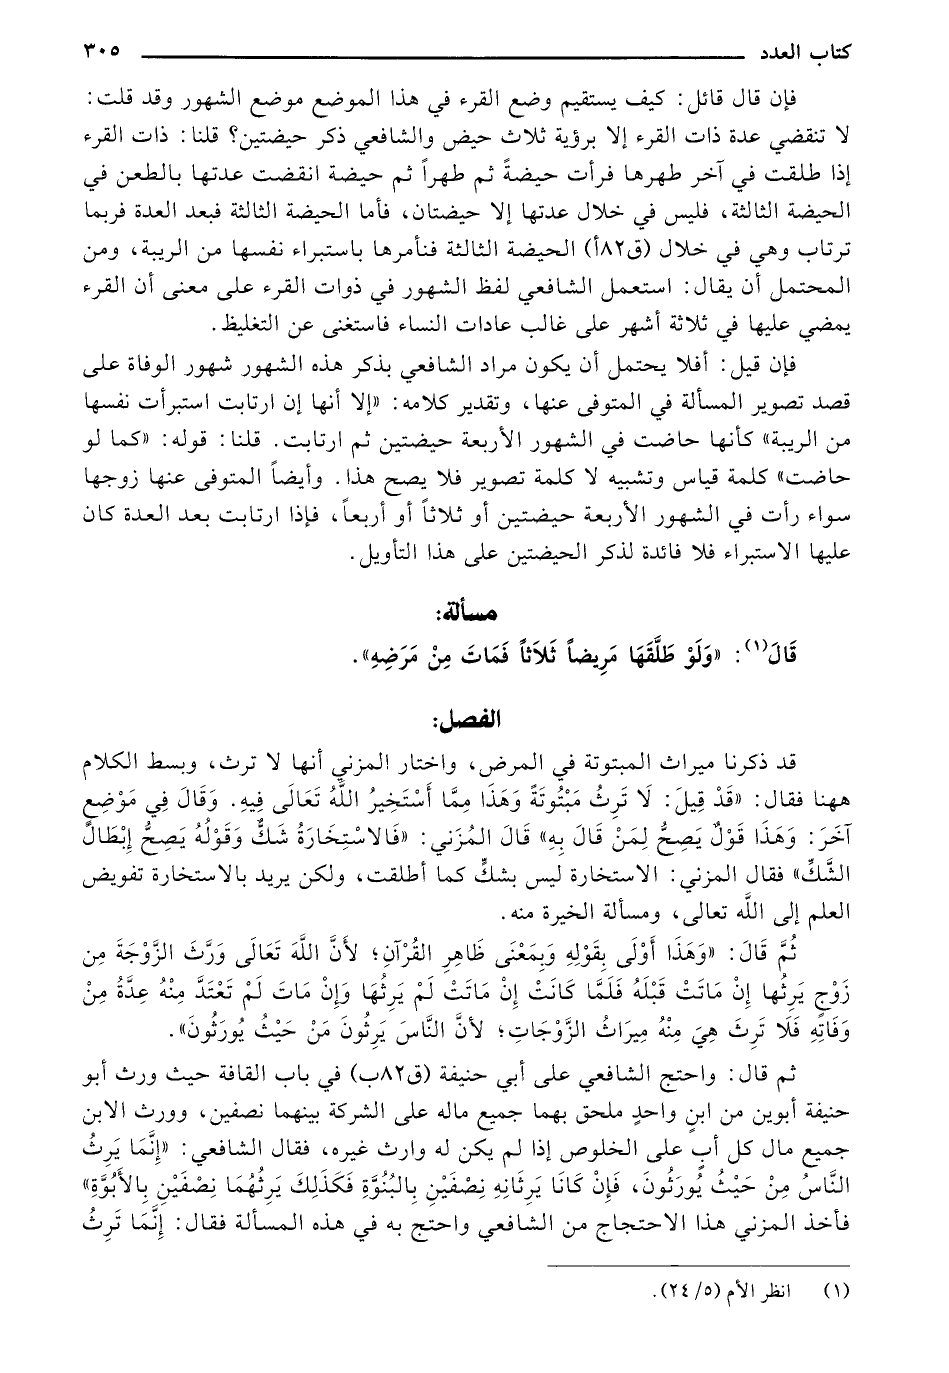 كتاب العدد ٣٠٥
فإن قال قائل: كيف يستقيم وضع القرء في هذا الموضع موضع الشهور وقد قلت:
لا تنقضي عدة ذات القرء إلا برؤية ثلاث حيض والشافعي ذكر حيضتين؟ قلنا: ذات القرء
إذا طلقت في آخر طهرها فرأت حيضةً ثم طهراً ثم حيضة انقضت عدتها بالطعن في
الحيضة الثالثة، فليس في خلال عدتها إلا حيضتان، فأما الحيضة الثالثة فبعد العدة فربما
ترتاب وهي في خلال (ق٨٢أ) الحيضة الثالثة فنأمرها باستبراء نفسها من الريبة، ومن
المحتمل أن يقال: استعمل الشافعي لفظ الشهور في ذوات القرء على معنى أن القرء
يمضي عليها في ثلاثة أشهر على غالب عادات النساء فاستغنى عن التغليظ.
فإن قيل: أفلا يحتمل أن يكون مراد الشافعي بذكر هذه الشهور شهور الوفاة على
قصد تصوير المسألة في المتوفى عنها، وتقدير كلامه: «إلا أنها إن ارتابت استبرأت نفسها
من الريبة» كأنها حاضت في الشهور الأربعة حيضتين ثم ارتابت. قلنا: قوله: «كما لو
حاضت» كلمة قياس وتشبيه لا كلمة تصوير فلا يصح هذا. وأيضاً المتوفى عنها زوجها
سواء رأت في الشهور الأربعة حيضتين أو ثلاثاً أو أربعاً، فإذا ارتابت بعد العدة كان
عليها الاستبراء فلا فائدة لذكر الحيضتين على هذا التأويل.
مسألة:
قَالَ(١): «وَلَوْ طَلَّقَهَا مَرِيضاً ثَلَاثاً فَمَاتَ مِنْ مَرَضِهِ».
الفصل:
قد ذكرنا ميراث المبتوتة في المرض، واختار المزني أنها لا ترث، وبسط الكلام
ههنا فقال: «قَدْ قِيلَ: لَا تَرِثُ مَبْتُوتَةً وَهَذَا مِمَّا أَسْتَخِيرُ اللَّهَ تَعَالَى فِيهِ. وَقَالَ فِي مَوْضِعٍ
آخَرَ: وَهَذَا قَوْلٌ يَصِحُّ لِمَنْ قَالَ بِهِ» قَالَ المُزَني: «فَالاسْتِخَارَةُ شَكٌّ وَقَوْلُهُ يَصِحُّ إِبْطَالُ
الشَّكِّ» فقال المزني: الاستخارة ليس بشكٍّ كما أطلقت، ولكن يريد بالاستخارة تفويض
العلم إلى اللَّه تعالى، ومسألة الخيرة منه.
ثُمَّ قَالَ: «وَهَذَا أَوْلَى بِقَوْلِهِ وَبِمَعْنَى ظَاهِرِ القُرْآنِ؛ لأَنَّ اللَّهَ تَعَالَى وَرَّثَ الزَّوْجَةَ مِن
زَوْجٍ يَرِثُها إِنْ مَاتَتْ قَبْلَهُ فَلَمَّا كَانَتْ إِنْ مَاتَتْ لَمْ يَرِثُهَا وَإِنْ مَاتَ لَمْ تَعْتَدَّ مِنْهُ عِدَّةُ مِنْ
وَفَاتِهِ فَلَا تَرِثَ هِيَ مِنْهُ مِيرَاثُ الزَّوْجَاتِ؛ لأنَّ النَّاسَ يَرِثُونَ مَنْ حَيْثُ يُورَثُونَ».
ثم قال: واحتج الشافعي على أبي حنيفة (ق٨٢ب) في باب القافة حيث ورث أبو
حنيفة أبوين من ابنٍ واحدٍ ملحق بهما جميع ماله على الشركة بينهما نصفين، وورث الابن
جميع مال كل أبٍ على الخلوص إذا لم يكن له وارث غيره، فقال الشافعي: «إِنَّمَا يَرِثُ
النَّاسُ مِنْ حَيْثُ يُورَثُونَ، فَإِنْ كَانَا يَرِثَانِهِ نِصْفَيْنِ بِالبُنُوَّةِ فَكَذَلِكَ يَرِثُهُمَا نِصْفَيْنِ بِالأُبُوَّةِ»
فأخذ المزني هذا الاحتجاج من الشافعي واحتج به في هذه المسألة فقال: إِنَّمَا تَرِثُ
(١) انظر الأم (٥/ ٢٤).